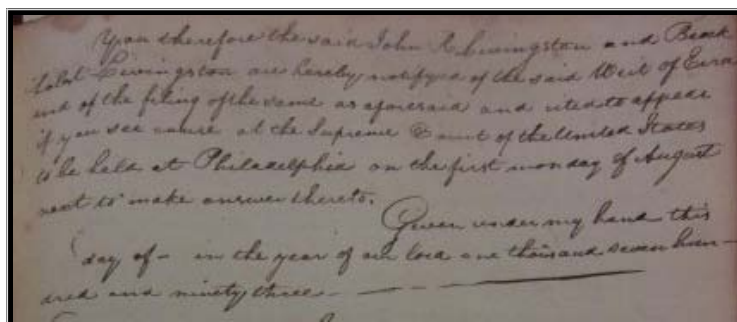 You therefore the said John R Livingston and Brock
holst Livingston are hereby notifyed of the said Writ of Error
and of the filing of the same as aforesaid and cited to appear
if you see cause at the Supreme Court of the United States
to be held at Philadelphia on the first monday of August
next to make answer thereto.
Given under my hand this
day of - in the year of our lord one thousand seven hun-
dred and ninety three -